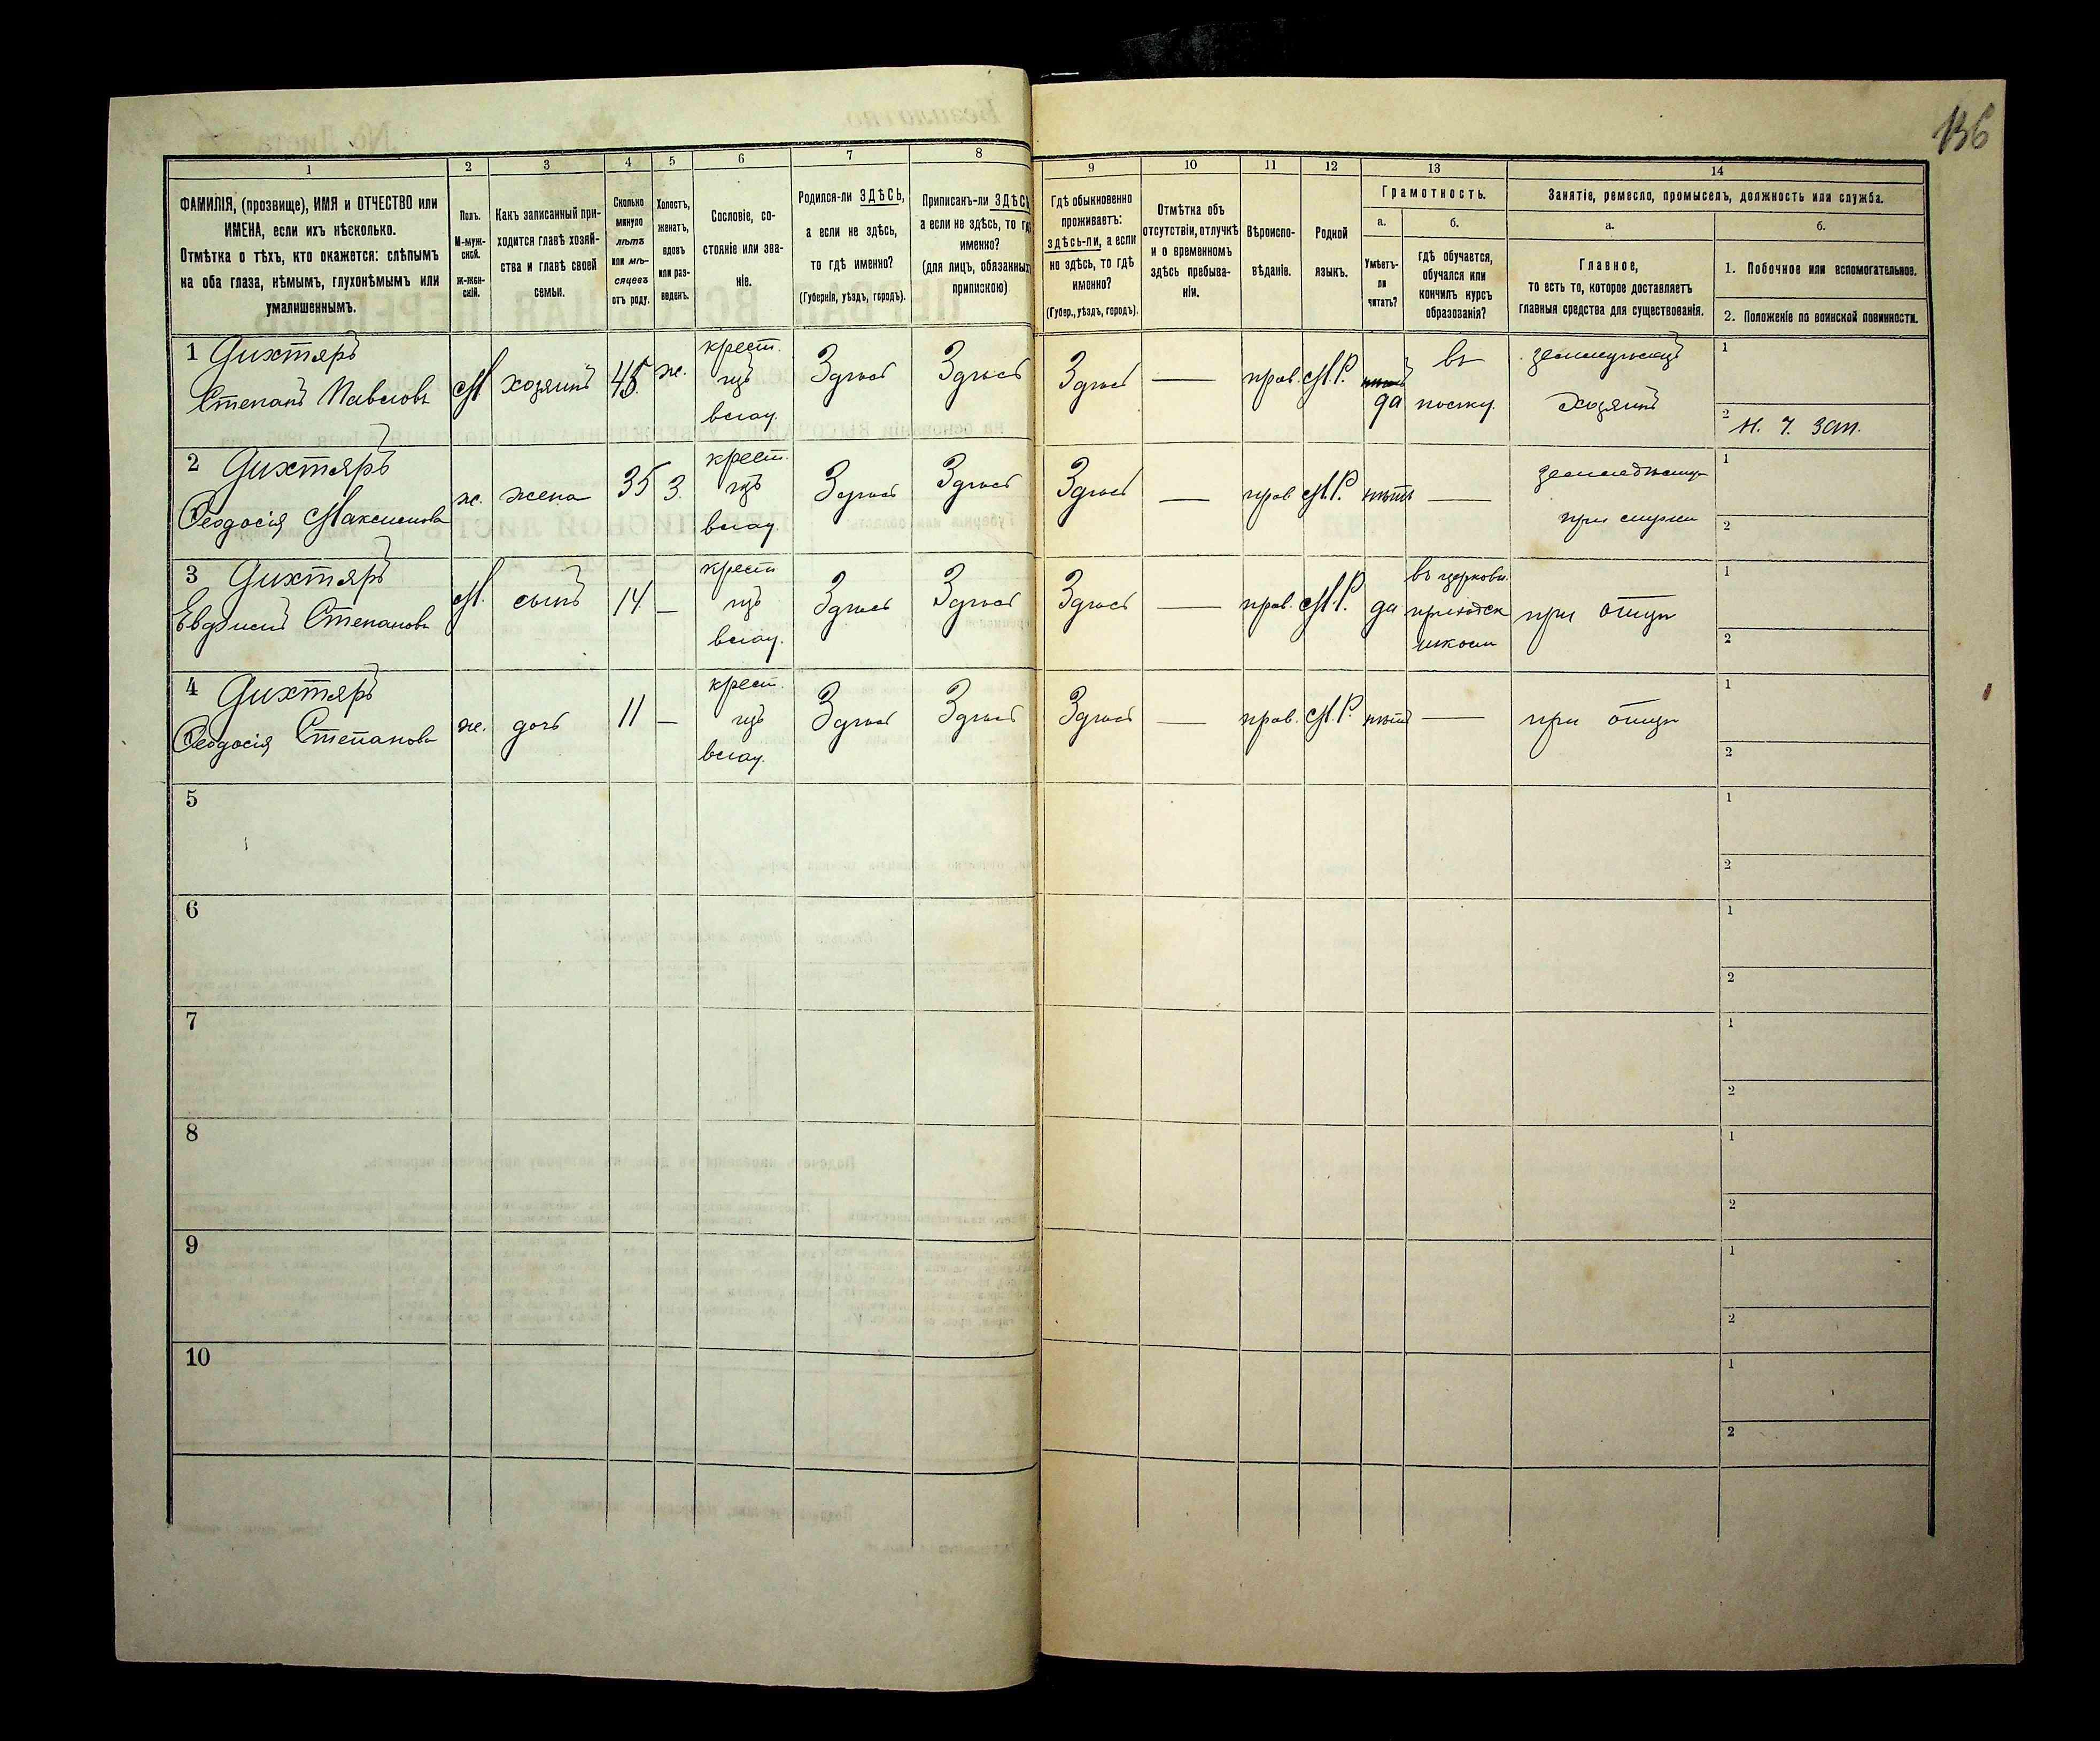 136
1
2
3
4
5
6
7
8
9
10
11
12
13
14
ФАМИЛІЯ, (прозвище), ИМЯ и ОТЧЕСТВО или
ИМЕНА, если ихъ нѣсколько.
Отмѣтка о тѣхъ, кто окажется: слѣпымъ
на оба глаза, нѣмымъ, глухонѣмымъ или
умалишеннымъ.
Полъ.
М-муж-
ской.
Ж-жен-
скій.
Какъ записанный при-
ходится главѣ хозяй-
ства и главѣ своей
семьи.
Сколько
минуло
лѣтъ
или мѣ-
сяцевъ
отъ роду.
Холостъ,
женатъ,
вдовъ
или раз-
веденъ.
Сословіе, со-
стояніе или зва-
ніе.
Родился-ли ЗДѢСЬ,
а если не здѣсь,
то гдѣ именно?
(Губернія, уѣздъ, городъ).
Приписанъ-ли ЗДѢСЬ
а если не здѣсь, то гдѣ
именно?
(для лицъ, обязанныхъ
припискою)
Гдѣ обыкновенно
проживаетъ:
здѣсь-ли, а если
не здѣсь, то гдѣ
именно?
(Губер., уѣздъ, городъ).
Отмѣтка объ
отсутствіи, отлучкѣ
и о временномъ
здѣсь пребыва-
ніи.
Вѣроиспо-
вѣданіе.
Родной
языкъ.
Грамотность.
а.
Умѣетъ-
ли
читать?
б.
гдѣ обучается,
обучался или
кончилъ курсъ
образованія?
Занятіе, ремесло, промыселъ, должность или служба.
а.
Главное,
то есть то, которое доставляетъ
главныя средства для существованія.
б.
1. Побочное или вспомогательное.
2. Положеніе по воинской повинности.
1 Дихтяръ
Степанъ Павловъ
М
хозяинъ
45.
ж.
крест.
изъ
Здѣсь
Здѣсь
Здѣсь
—
прав.
М.Р.
да
въ
полку.
Хозяинъ
1
2
Н. Ч. зап.
2 Дихтяръ
Феодосія Максимова
ж.
жена
35
З.
крест.
изъ
Здѣсь
Здѣсь
Здѣсь
—
прав
М.Р.
нѣтъ
—
при мужи
1
2
3 Дихтяръ
Степановъ
М.
сынъ
14.
—
крест
изъ
Здѣсь
Здѣсь
Здѣсь
—
прав.
М.Р.
да
въ церковн.
приходск
школи
при отцу
1
2
4 Дихтяръ
Феодосія Степанова
ж.
дочь
11
—
крест.
изъ
Здѣсь
Здѣсь
Здѣсь
—
прав.
М.Р.
нѣтъ
—
при отцу
1
2
5
1
2
6
1
2
7
1
2
8
1
2
9
1
2
10
1
2